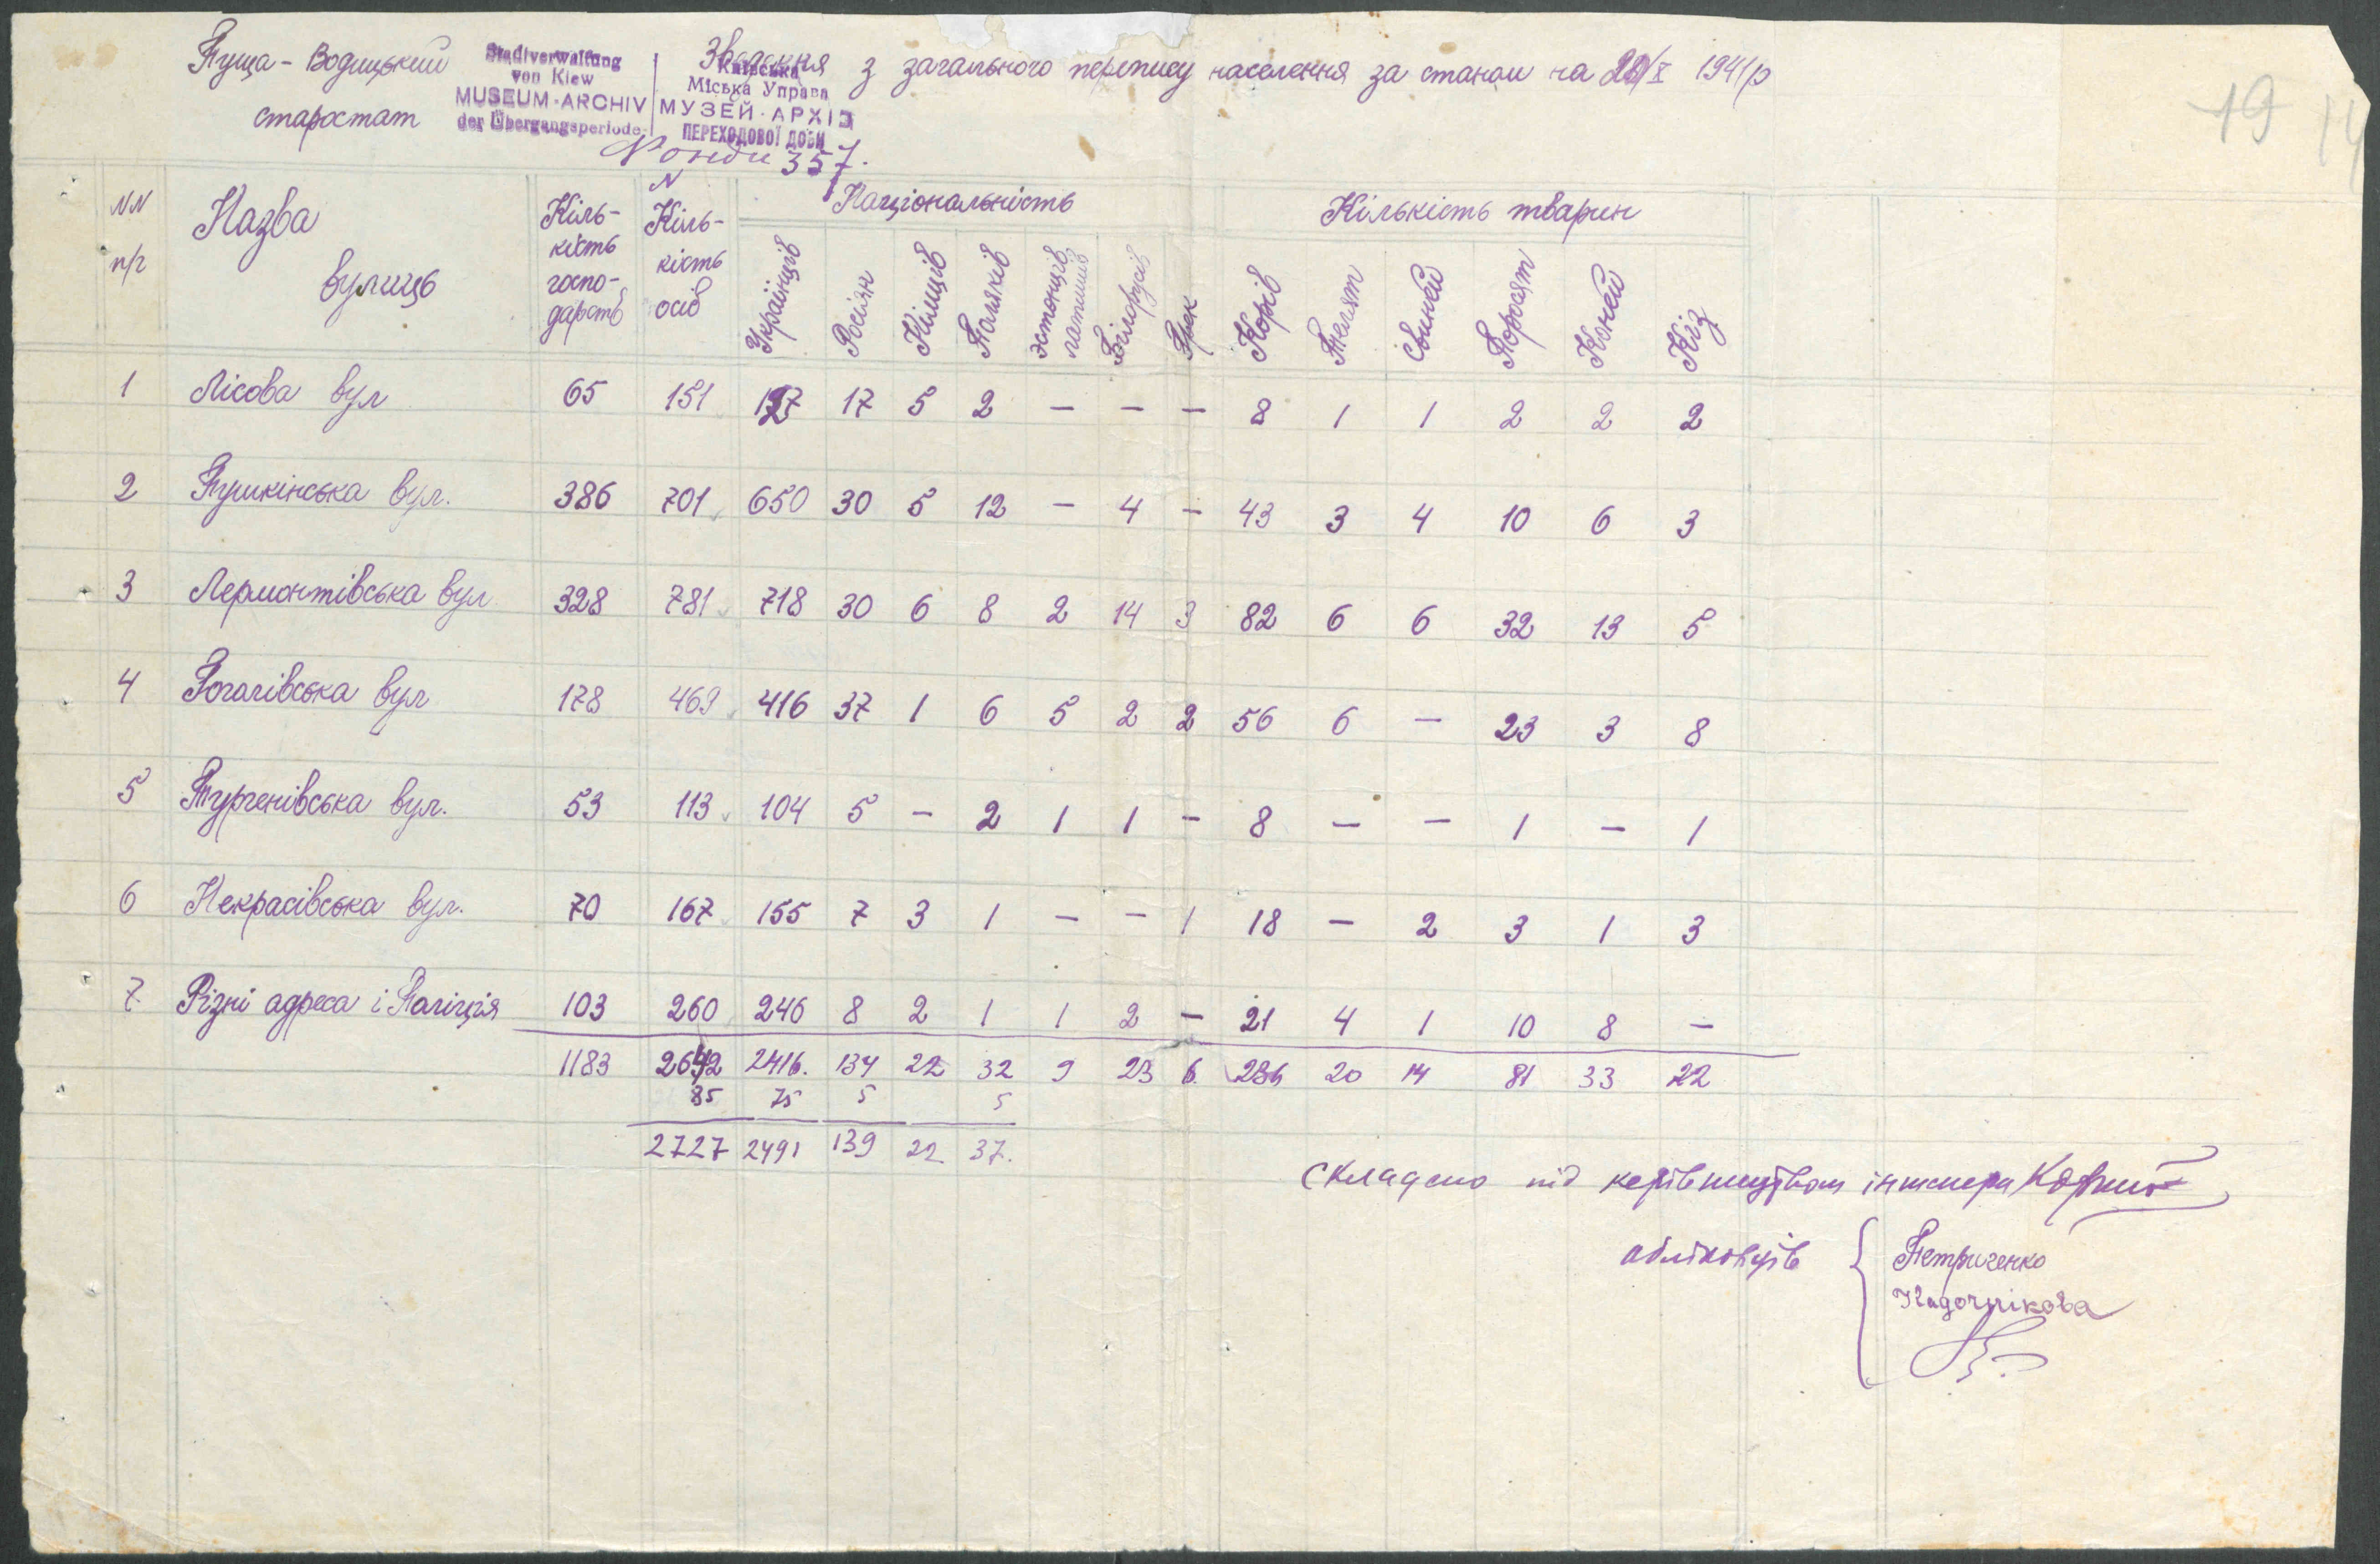 Пуща-Водицький
старостат
Stadtverwaltung
von Kiew
MUSEUM-ARCHIV
der Übergangsperiode
Київська
Міська Управа
МУЗЕЙ-АРХІВ
ПЕРЕХОДОВОЇ ДОБИ
Зведення з загального перепису населення за станом на 28/X 1941 р
Фонди 357.
N
19 14
NN п/г Назва вулиць Кіль-кість госпо-дарств Кіль-кість осіб Національність Кількість тварин
Українців Росіян Німців Поляків Эстонців, латишів Білорусів Грек Корів Телят Свиней Поросят Коней Кіз
1 Лісова вул 65 151 127 17 5 2 — — — 8 1 1 2 2 2
2 Пушкінська вул. 386 701 650 30 5 12 — 4 — 43 3 4 10 6 3
3 Лермонтівська вул 328 781 718 30 6 8 2 14 3 82 6 6 32 13 5
4 Гоголівська вул 178 469 416 37 1 6 5 2 2 56 6 — 23 3 8
5 Тургенівська вул. 53 113 104 5 — 2 1 1 — 8 — — 1 — 1
6 Некрасівська вул. 70 167 155 7 3 1 — — 1 18 — 2 3 1 3
7. Різні адреса і Поліція 103 260 246 8 2 1 1 2 — 21 4 1 10 8 —
1183 2642 2416. 134 22 32 9 23 6. 236 20 14 81 33 22
85 75 5 5
2727 2491 139 22 37.
Складено під керівництвом інженера
обліковців
Петриченко
Кадочнікова